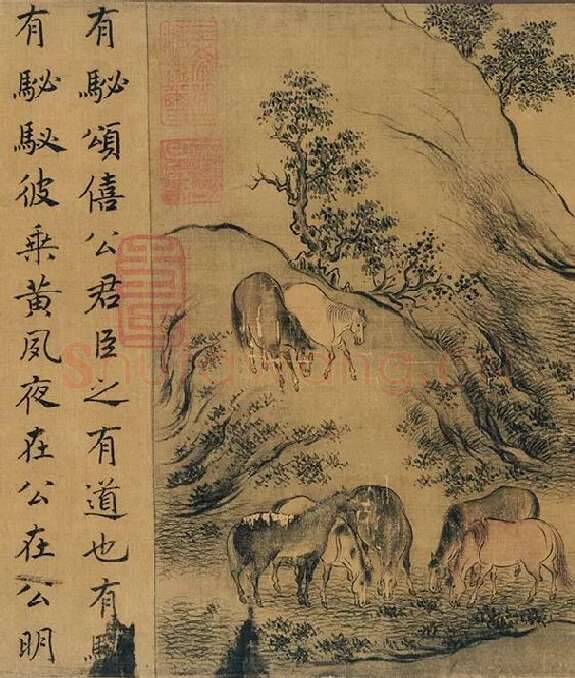 有駜頌僖公君臣之有道也有駜
有駜駜彼乘黃夙夜在公在公明